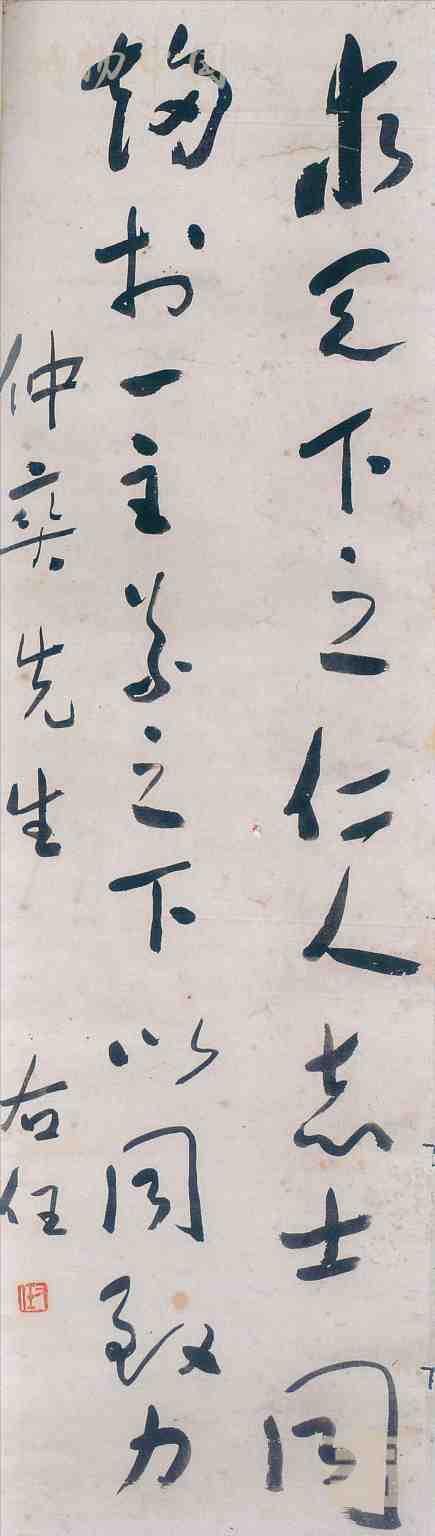 求天下之仁人志士同
趨於一主義之下以同致力
仲奕先生
右任
右任